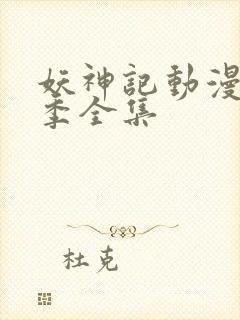 妖神記動漫
季全集
杜克